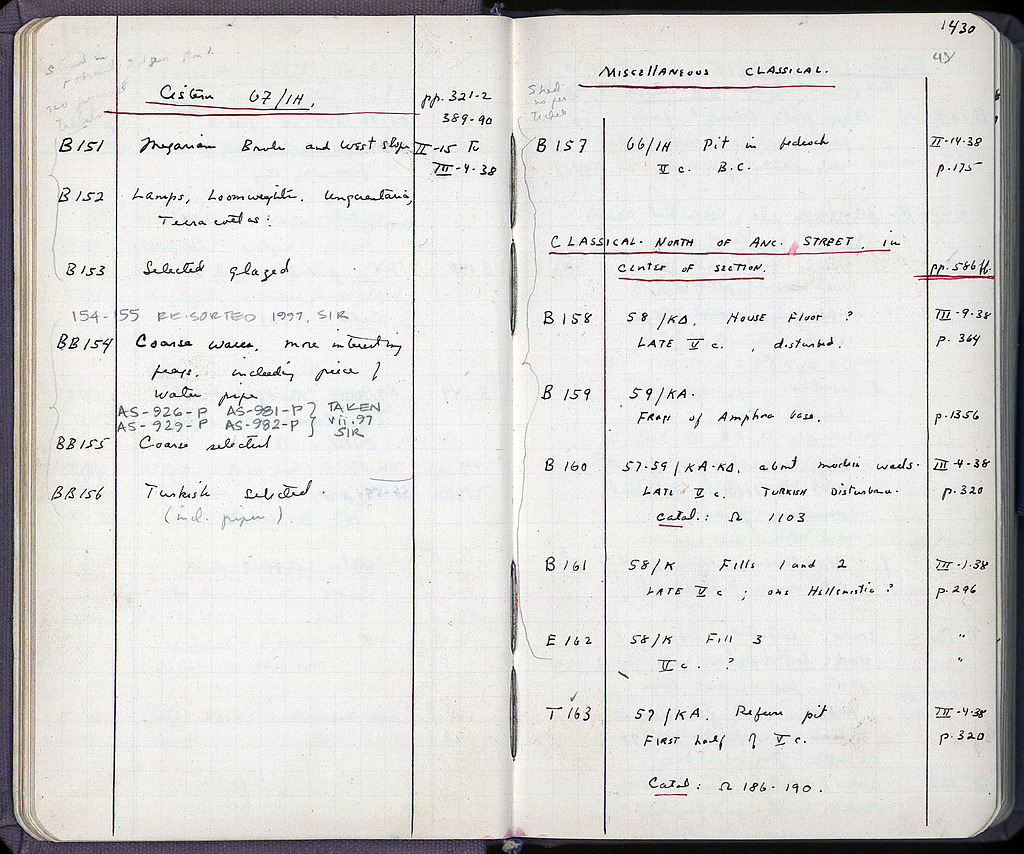 Cistern 67/IH.
pp. 321-2
389-90
B 151 Megarian Bowls and West slope II-15 to
III-4-38
B 152 Lamps, Loomweights, Unguentaria,
Terracottas:
B 153 Selected glazed
154-155 RE-SORTED 1997, SIR
BB 154 Coarse wares, more interesting
frags. including piece of
water pipe
AS-926-P AS-981-P } TAKEN
AS-929-P AS-982-P } vii.97
SIR
BB 155 Coarse selected
BB 156 Turkish selected.
(incl. pipes).
1430
MISCELLANEOUS CLASSICAL.
B 157 66/IH Pit in bedrock II-14-38
II c. B.C. p. 175
CLASSICAL NORTH OF ANC. STREET, in
CENTER OF SECTION. pp. 586 ff.
B 158 58/KΔ. HOUSE Floor ? III-9-38
LATE V c., disturbed. p. 364
B 159 59/KA.
FRAGS of Amphora base. p. 1356
B 160 57-59/KA-KΔ. about modern walls. III-4-38
LATE V c. TURKISH Disturbance. p. 320
Catal.: Ω 1103
B 161 58/K Fills 1 and 2 III-1-38
LATE V c; one Hellenistic ? p. 296
E 162 58/K Fill 3 "
V c. ? "
T 163 57/KA. Refuse pit III-4-38
FIRST half of V c. p. 320
Catal: Ω 186-190.